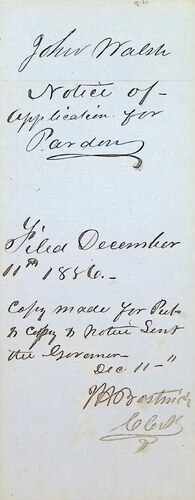 John Walsh
Notice of
Application for
Pardon
Filed December
11th 1856.
Copy made for Pub
& Copy & Notice Sent
the Governor
Dec 11 - "
Bostwick
Clerk